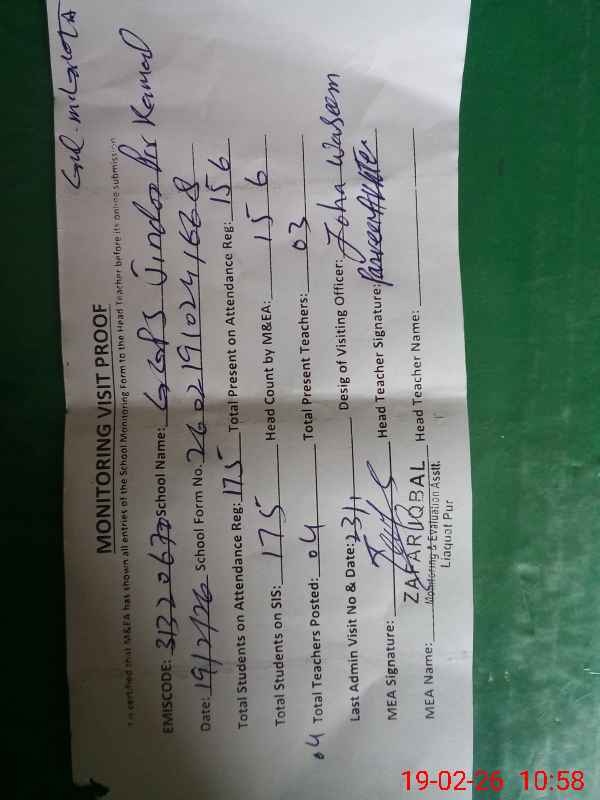 MONITORING VISIT PROOF
It is certified that M&EA has shown all entries of the School Monitoring Form to the Head Teacher before its online submission
EMISCODE: 31320670 School Name: GGPS Jindoo Pir Kamal
Date: 19/2/26 School Form No. 260219102416668
Total Students on Attendance Reg: 175 Total Present on Attendance Reg: 156
Total Students on SIS: 175 Head Count by M&EA: 156
04 Total Teachers Posted: 04 Total Present Teachers: 03
Last Admin Visit No & Date: 23/1 Desig of Visiting Officer: Zoha Waseem
MEA Signature: Head Teacher Signature: Parveen Akhter
MEA Name: ZAFAR IQBAL Head Teacher Name:
Monitoring & Evaluation Asstt.
Liaquat Pur
19-02-26 10:58